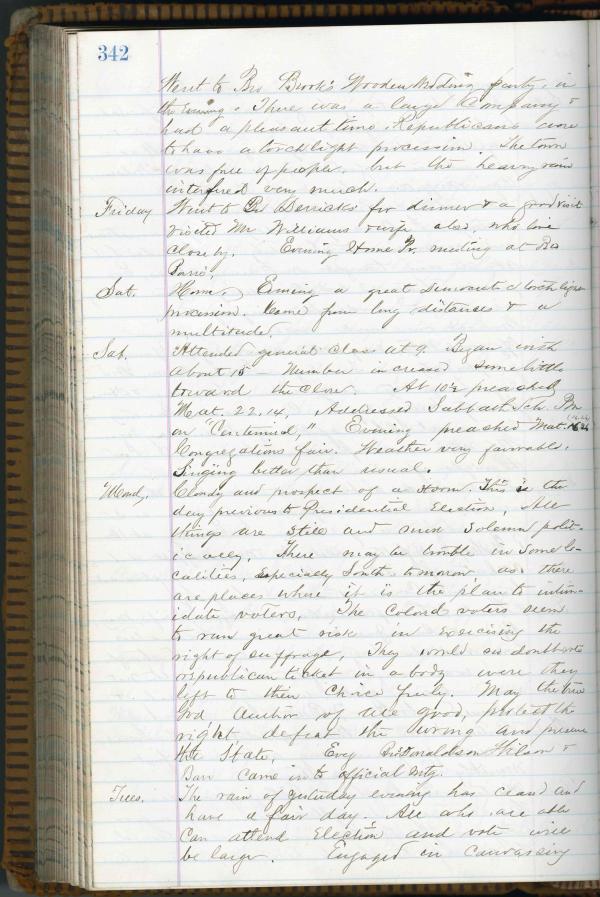 342
Went to Bro Brook's Wooden Wedding party, in
the Evening. There was a large Company &
had a pleasant time. Republicans were
to have a torchlight procession. The town
was full of people, but the heavy rain
interfered very much.
Friday Went to Br Derricks for dinner & a good visit
visited Mr Williams & wife also, who live
close by. Evening Home Pr. meeting at Bro
Barrs.
Sat. Home. Evening a great democratic torch light
procession. Came from long distances & a
multitude.
Sab. Attended general class at 9. Began with
about 15 - Number increased some little
toward the close. At 10½ preached
Mat. 22.14, Addressed Sabbath Sch. Pm
on "Centennial," Evening preached Mat.
Congregations fair. Weather very favorable.
Singing better than usual.
Mondy. Cloudy and prospect of a storm. This is the
day previous to Presidential Election, All
things are still and seem solemn polit-
ically, There may be trouble in some lo-
calities, especially South tomorow, as there
are places where it is the plan to intim-
idate voters, The Colord voters seem
to run great risk in exercising the
right of suffrage, They would no doubt vote
republican ticket in a body were they
left to their choice freely. May the true
God Author of all good, protect the
right defeat the wrong and preserve
the State, Evey Bro Donaldson Wilson &
Barr came in to official Mtg.
Tues. The rain of yesterday evening has ceasd and
have a fair day. All who are able
can attend Election and vote will
be large. Engaged in canvassing